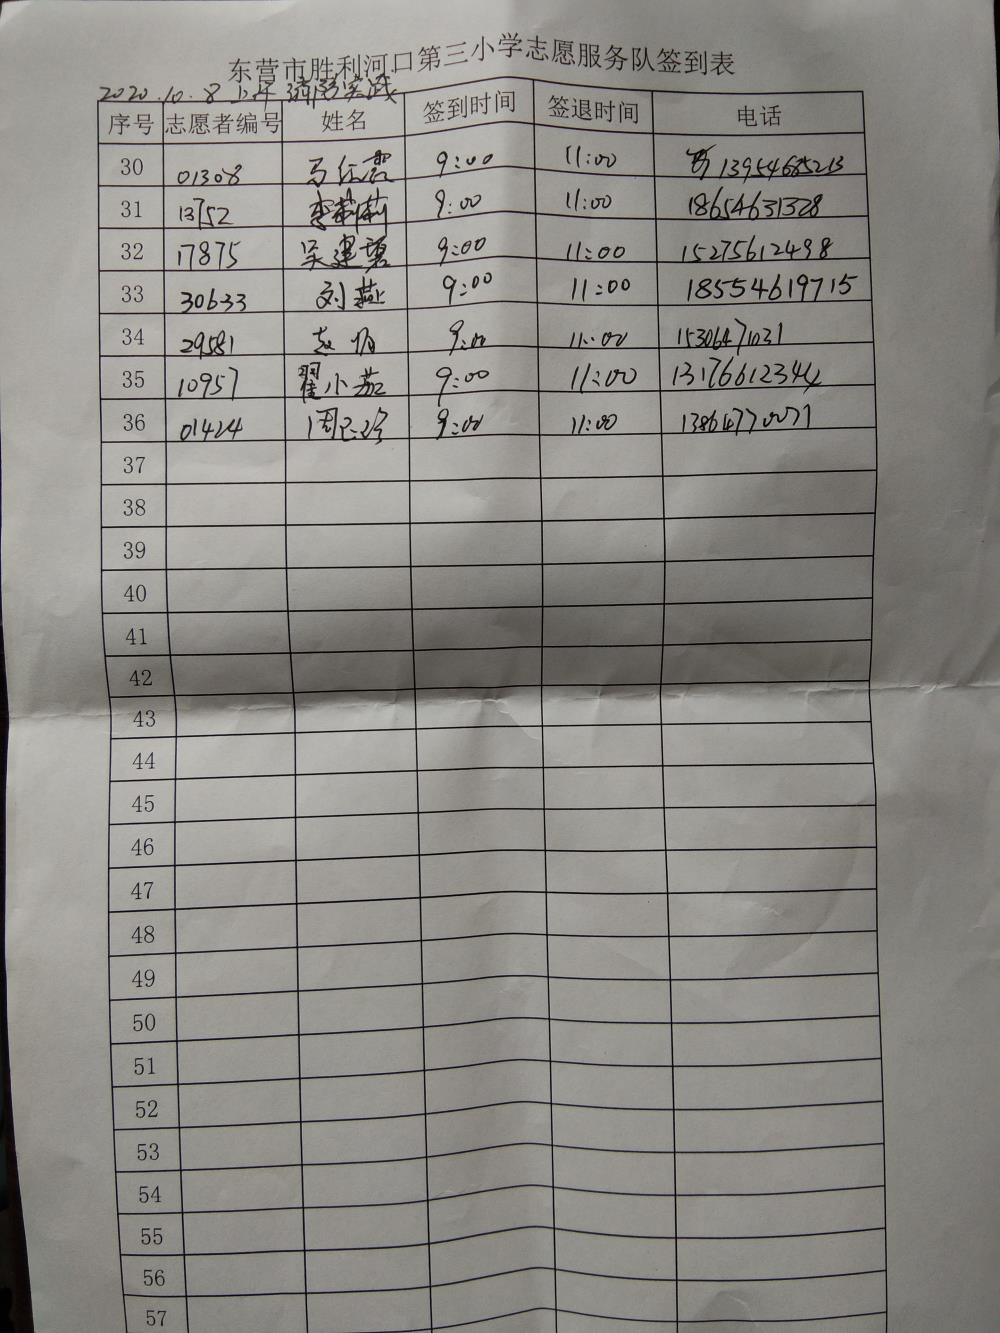 东营市胜利河口第三小学志愿服务队签到表
2020.10.8 上午 消防实践
序号 志愿者编号 姓名 签到时间 签退时间 电话
30 01308 9:00 11:00 13954685213
31 13752 李莉莉 9:00 11:00 18654631328
32 17875 吴建碧 9:00 11:00 15275612498
33 30633 刘燕 9:00 11:00 18554619715
34 29581 9:00 11:00 15306471031
35 10957 翟小茹 9:00 11:00 13176612344
36 01424 9:00 11:00 13864770071
37
38
39
40
41
42
43
44
45
46
47
48
49
50
51
52
53
54
55
56
57